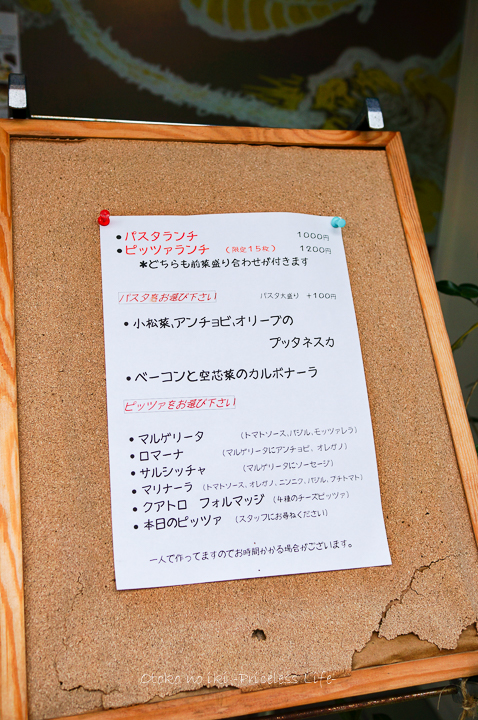 •パスタランチ 1000円
•ピッツァランチ （限定15枚） 1200円
＊どちらも前菜盛り合わせが付きます
パスタをお選び下さい パスタ大盛り +100円
•小松菜、アンチョビ、オリーブの
プッタネスカ
•ベーコンと空芯菜のカルボナーラ
ピッツァをお選び下さい
•マルゲリータ （トマトソース、バジル、モッツァレラ）
•ロマーナ （マルゲリータにアンチョビ、オレガノ）
•サルシッチャ （マルゲリータにソーセージ）
•マリナーラ （トマトソース、オレガノ、ニンニク、バジル、プチトマト）
•クアトロ フォルマッジ （4種のチーズピッツァ）
•本日のピッツァ （スタッフにお尋ねください）
一人で作ってますのでお時間かかる場合がございます。
Otoko no iki -Priceless Life-